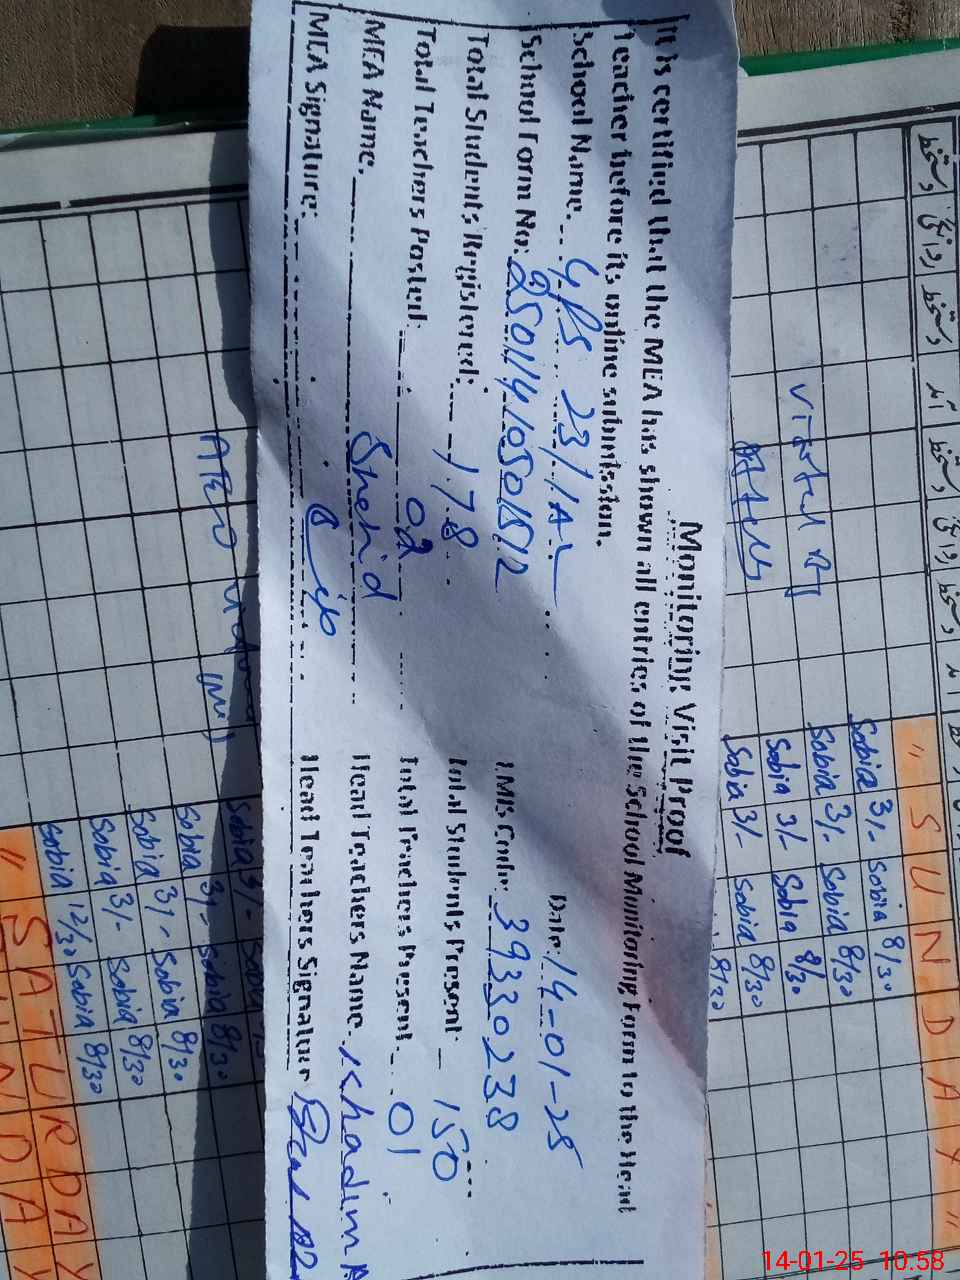 Monitoring Visit Proof
It is certified that the MEA has shown all entries of the School Monitoring Form to the Head
Teacher before its online submission.
School Name. GPS 23/1AL Date: 14-01-25
School Form No: 25011410501512 EMIS Code: 39330238
Total Students Registered: 178 Total Students Present 150
Total Teachers Posted: 02 Total Teachers Present 01
MEA Name. Shahid Head Teachers Name. Khadim
MEA Signature: Head Teachers Signature
دستخط
روانگی
دستخط
آمد
دستخط
روانگی
دستخط
آمد
" SUNDAY "
Sobia 3/- Sobia 8/30
Sobia 3/- Sobia 8/30
Sobia 3/- Sobia 8/30
Sobia 3/- Sobia 8/30
Visited by
AEO visited
Sobia 3/- Sobia 8/30
Sobia 3/- Sobia 8/30
Sobia 3/- Sobia 8/30
Sobia 12/30 Sobia 8/30
" SATURDAY
SUNDAY
14-01-25 10.58